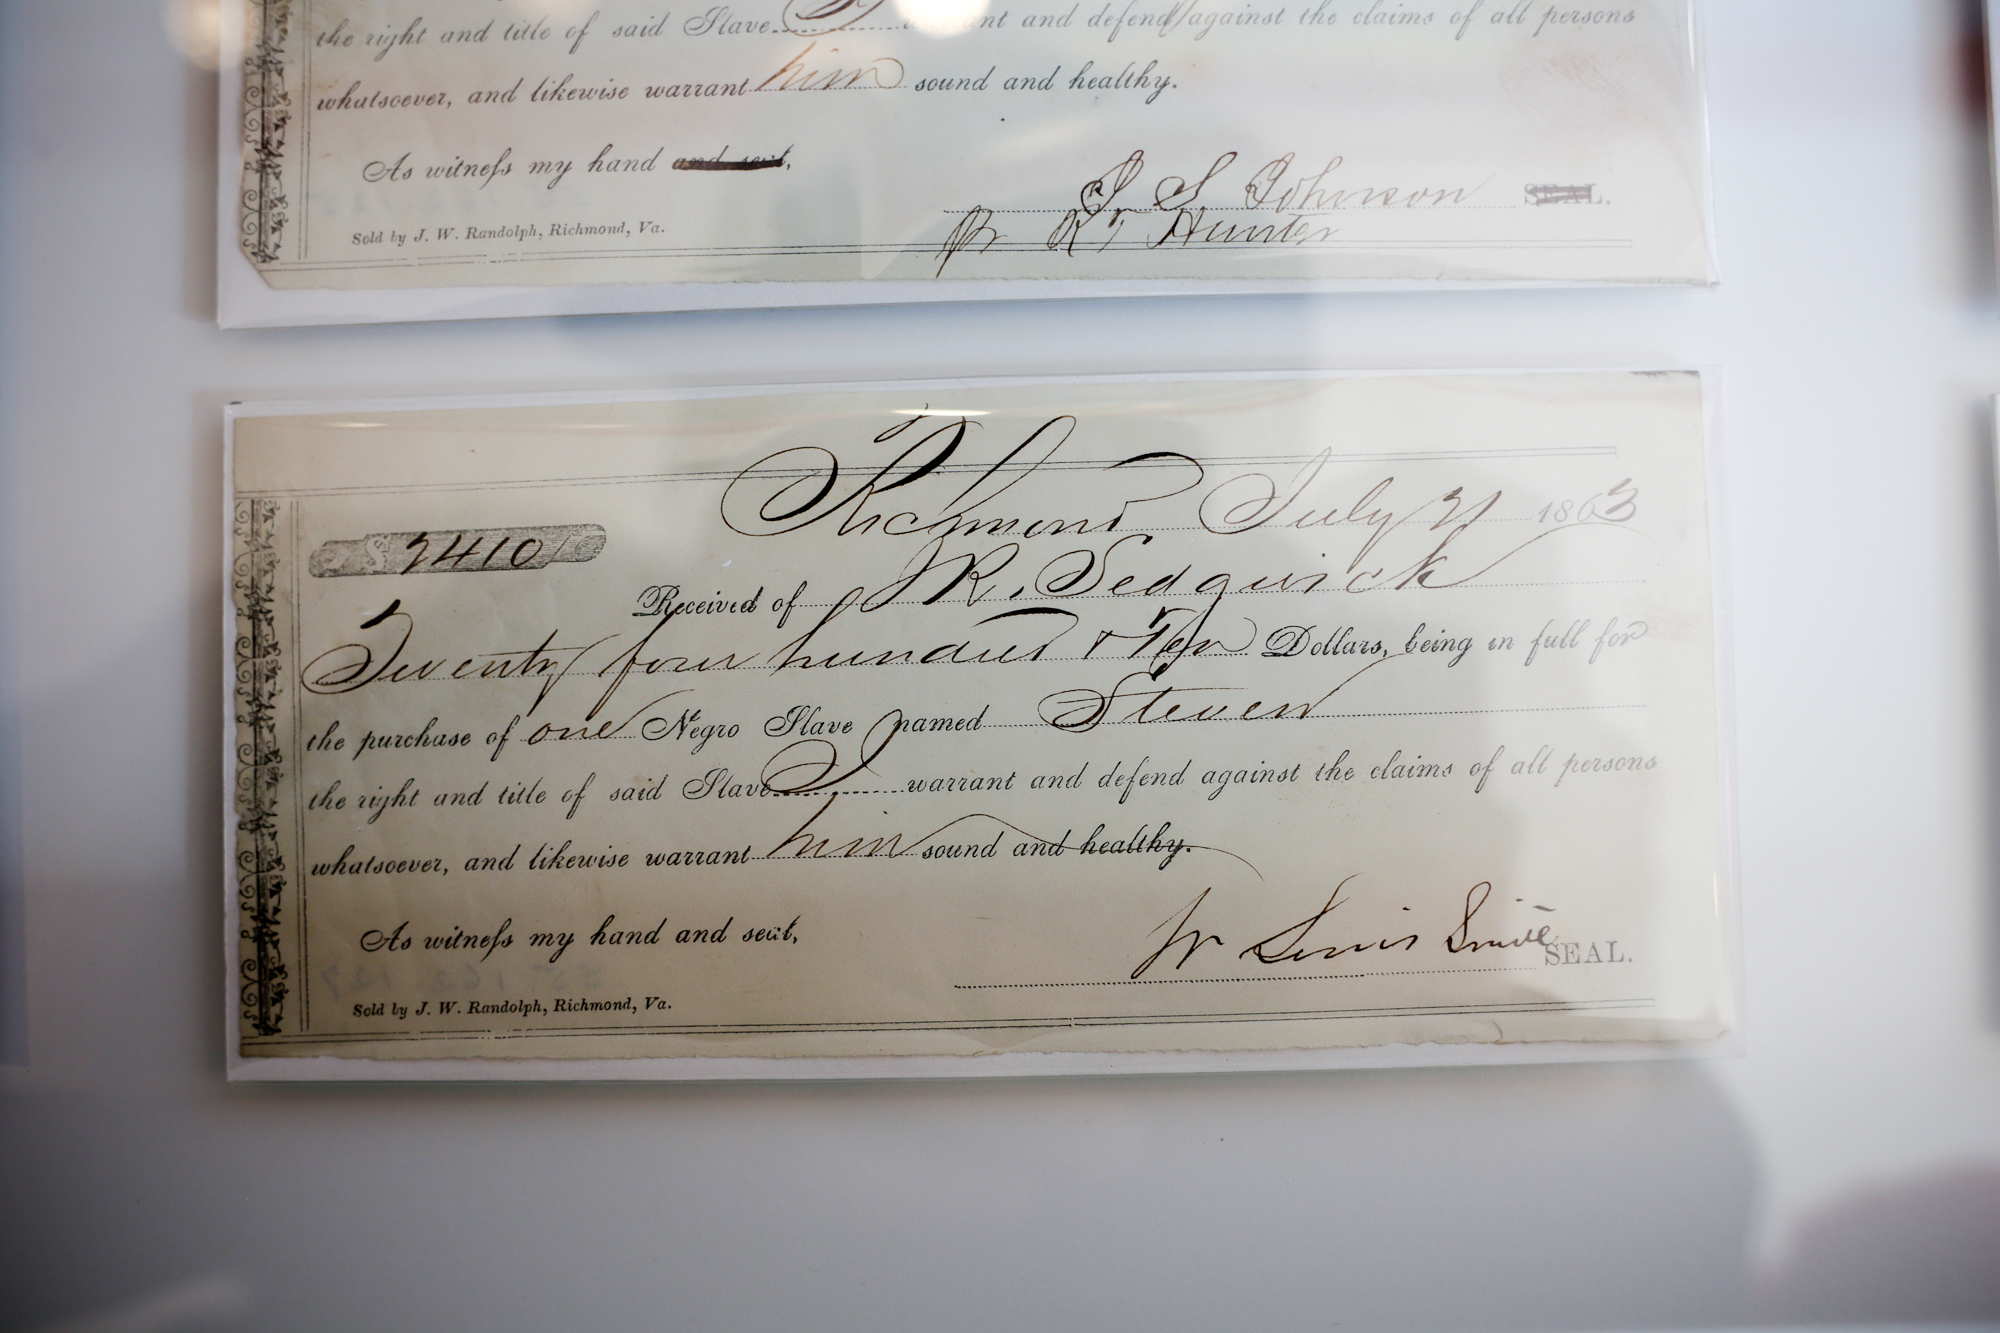 the right and title of said Slave I warrant and defend against the claims of all persons
whatsoever, and likewise warrant him sound and healthy.
As witness my hand and seal,
J. S. Johnson SEAL.
pr R T Hunter
Sold by J. W. Randolph, Richmond, Va.
Richmond July 21 1863
$ 2410
Received of R. Sedgwick
Twenty four hundred & Ten Dollars, being in full for
the purchase of one Negro Slave named Steven
the right and title of said Slave I warrant and defend against the claims of all persons
whatsoever, and likewise warrant him sound and healthy.
As witness my hand and seal,
W Lewis Smith SEAL.
Sold by J. W. Randolph, Richmond, Va.